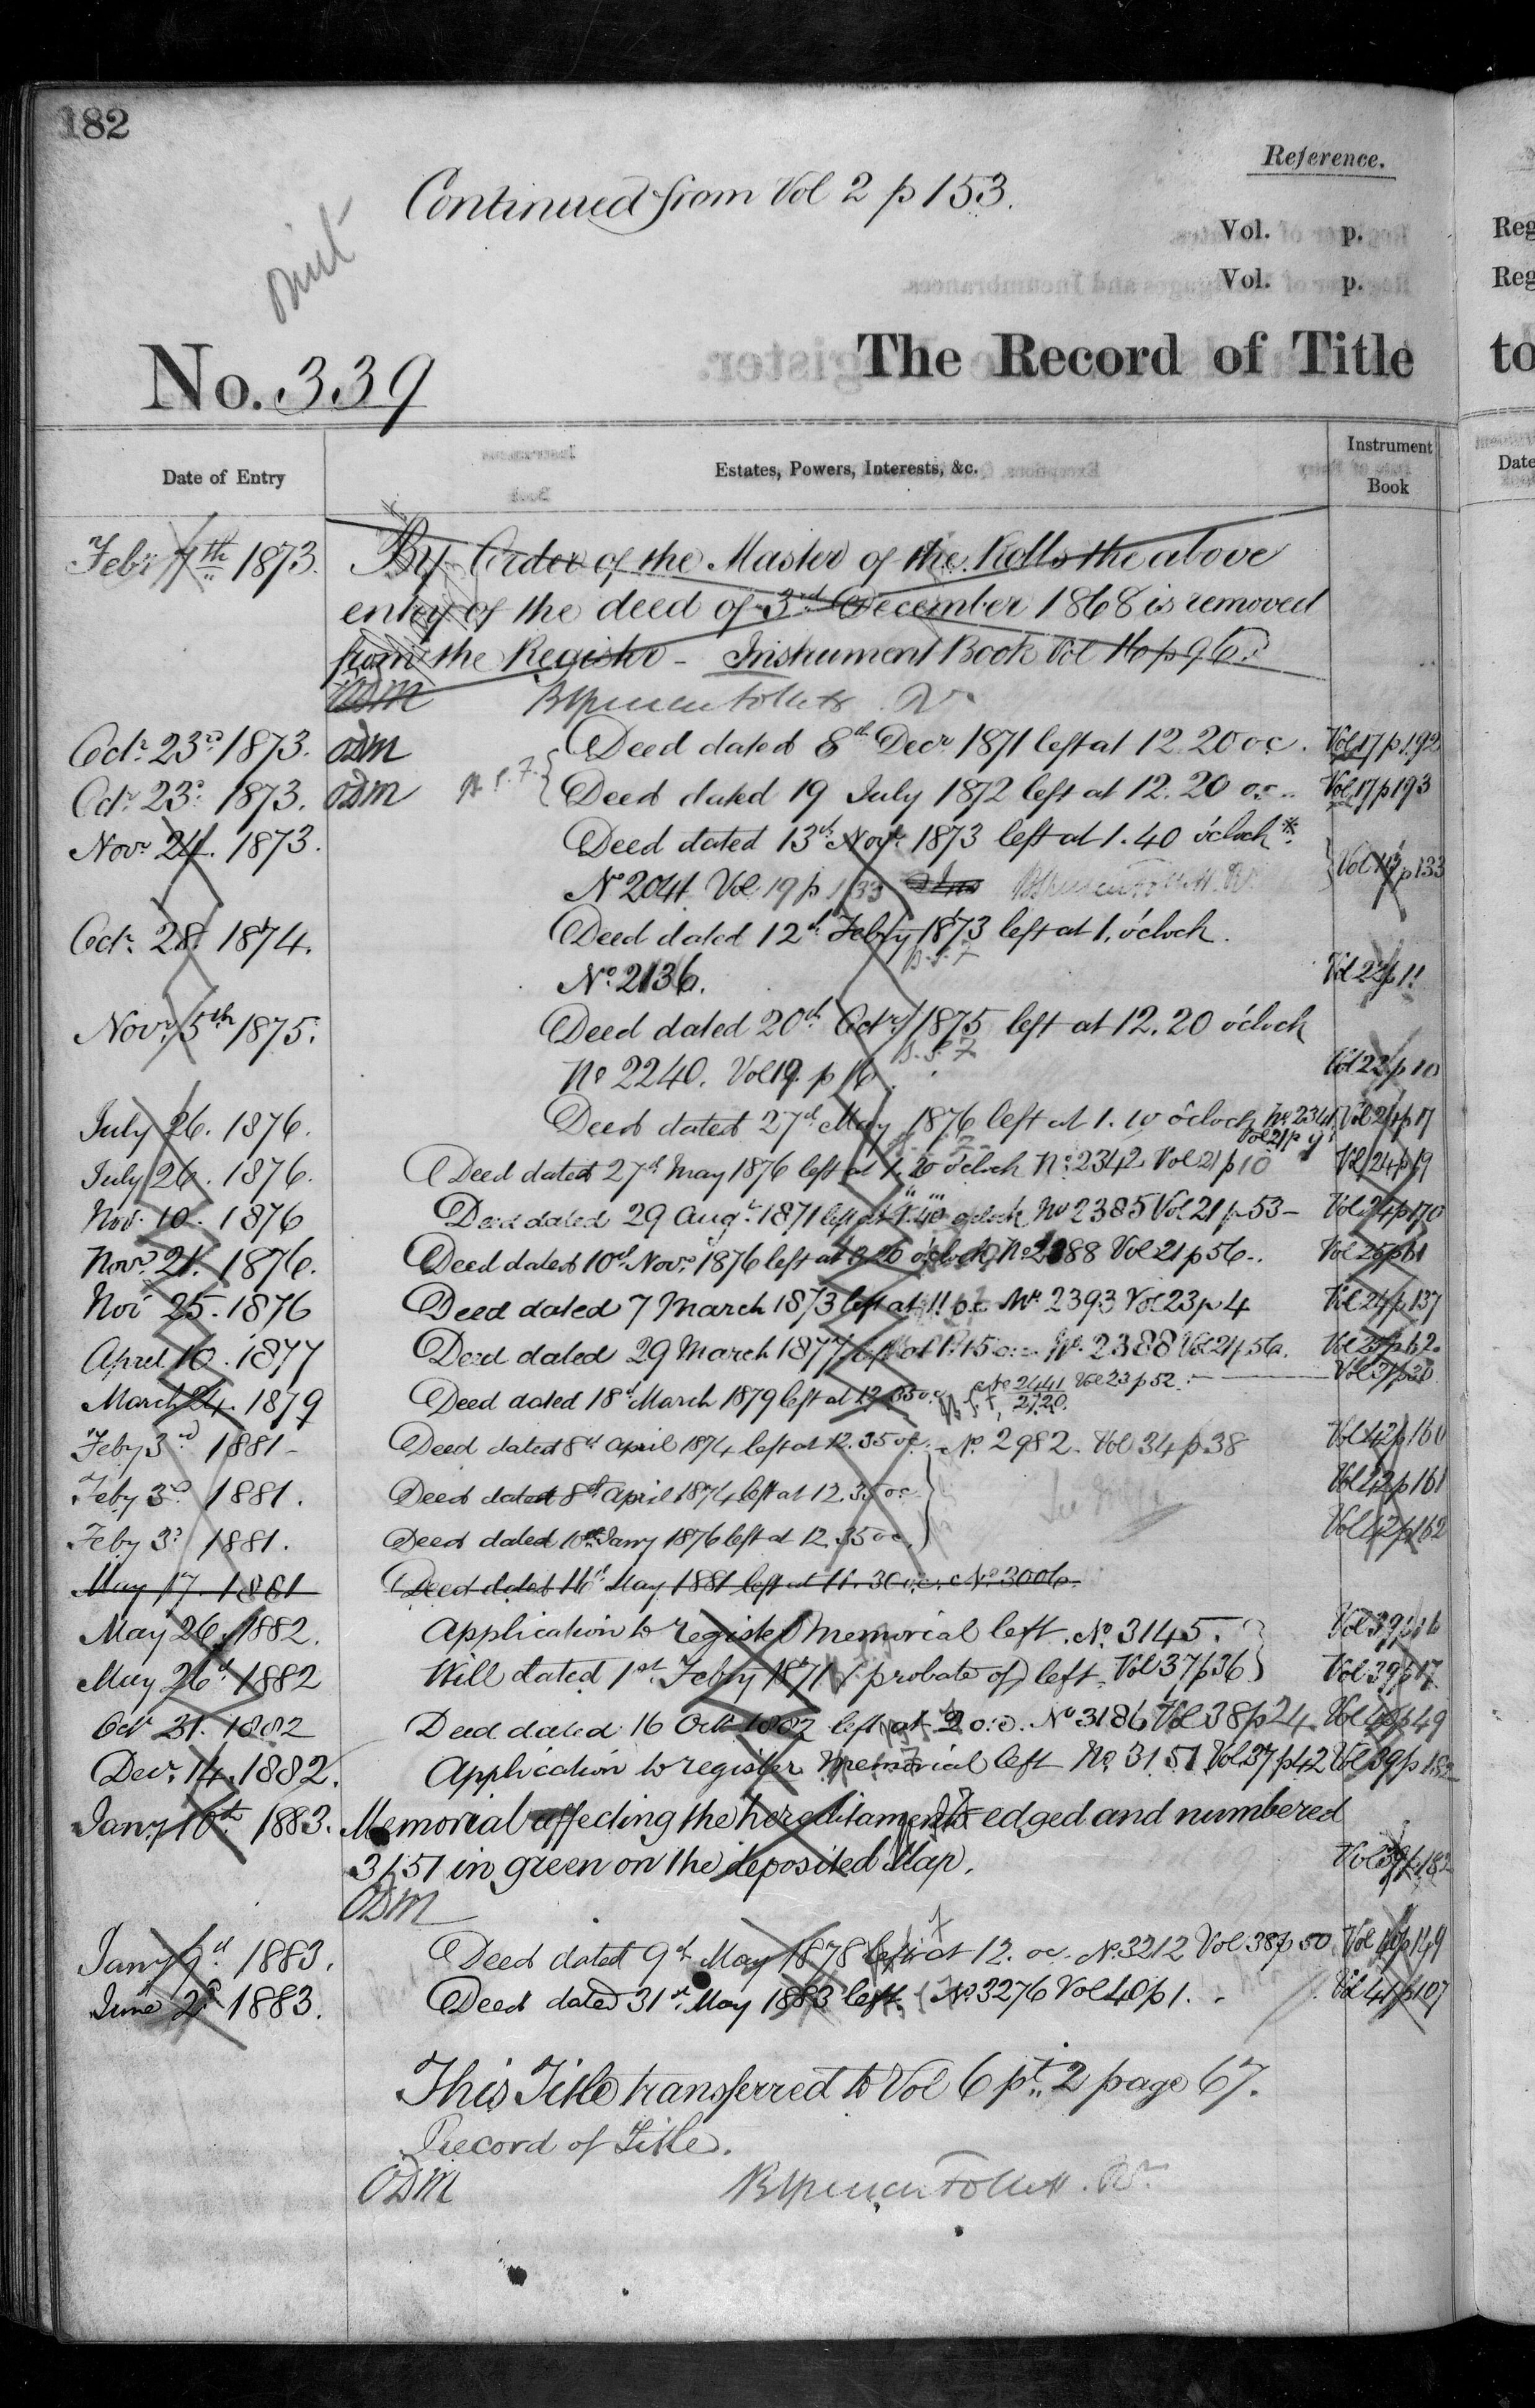 182
Reference.
Continued from Vol 2 p 153.
Vol. p.
Vol. p.
No. 339
The Record of Title
Date of Entry
Estates, Powers, Interests, &c.
Instrument Book
Febr 7th 1873. By Order of the Master of the Rolls the above
entry of the deed of 3rd December 1868 is removed
from the Register - Instrument Book Vol 16 p 96.
ODM
Octr 23rd 1873. ODM Deed dated 8th Decr 1871 left at 12.20 oc. Vol 17 p 192
Octr 23rd 1873. ODM Deed dated 19 July 1872 left at 12.20 oc. Vol 17 p 193
Novr 24. 1873. Deed dated 13th Novr 1873 left at 1.40 o'clock*
No 2041 Vol 19 p 133 p 133
Octr 28. 1874. Deed dated 12th Febry 1873 left at 1. o'clock.
No. 2136. Vol 22 p 11
Novr 5th 1875. Deed dated 20th Octr 1875 left at 12.20 o'clock
No 2240. Vol 19. p 16. Vol 22 p 10
July 26. 1876. Deed dated 27th May 1876 left at 1.10 o'clock No 2341 Vol 21 p 9 Vol 24 p 17
July 26. 1876. Deed dated 27th May 1876 left at 1.20 o'clock No. 2342 Vol 21 p 10 Vol 24 p 19
Nov. 10. 1876 Deed dated 29 Augt 1871 left at 1.40 oclock No 2385 Vol 21 p 53 - Vol 24 p 170
Novr 21. 1876. Deed dated 10th Novr 1876 left at o'clock No 2388 Vol 21 p 56. Vol 25 p 61
Nov 25. 1876 Deed dated 7 March 1873 left at 11 o.c. No 2393 Vol 23 p 4 Vol 24 p 137
April 10. 1877 Deed dated 29 March 1877 left at 1.15 o.c. No. 2388 Vol 21 p 56. Vol 25 p 62.
March 24. 1879 Deed dated 18th March 1879 left at 12.35 o.c. No 2441 Vol 23 p 52. Vol 31 p 30
2720.
Feby 3rd 1881 - Deed dated 8th April 1874 left at 12.35 oc. No. 2982. Vol 34 p 38 Vol 42 p 160
Feby 3rd 1881. Deed dated 8th April 1874 left at 12.35 oc Vol 42 p 161
Feby 3rd 1881. Deed dated 10th Janry 1876 left at 12.35 oc. Vol 42 p 162
May 17. 1881 Deed dated 16th May 1881 left at 11.30 oc. No. 3006.
May 26. 1882. Application to register Memorial left. No. 3145. Vol 39 p 16
May 26th 1882 Will dated 1st Febry 1871 (probate of) left. Vol 37 p 36 Vol 39 p 17.
Octr 31. 1882 Deed dated 16 Octr 1882 left at 2 o.c. No 3186 Vol 38 p 24. Vol 40 p 49
Decr 14. 1882. Application to register Memorial left No. 3151 Vol 37 p 42 Vol 39 p 182
Janry 10th 1883. Memorial affecting the hereditaments edged and numbered
3151 in green on the deposited Map. Vol 39 p 182
ODM
Janry 9th 1883. Deed dated 9th May 1878 left at 12. oc. No. 3212 Vol 38 p 50 Vol 40 p 149
June 2nd 1883. Deed dated 31st May 1883 left. No 3276 Vol 40 p 1. Vol 41 p 107
This Title transferred to Vol 6 pt. 2 page 67.
Record of Title.
ODM